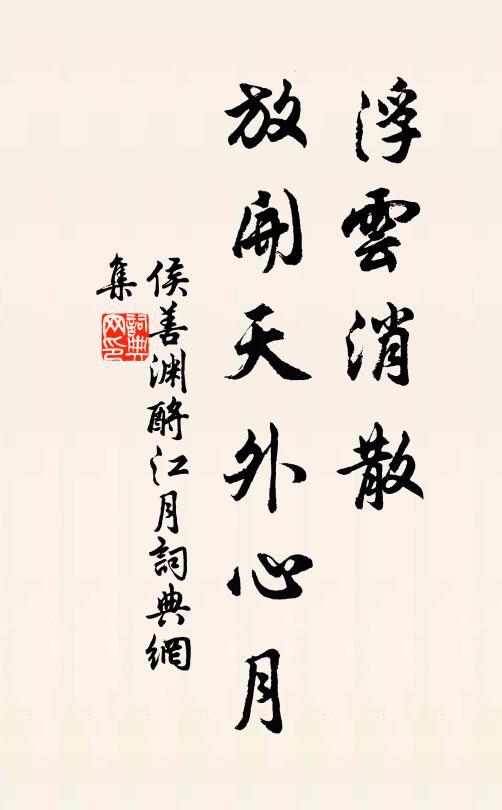 浮雲消散
放開天外心月
侯善渊酹江月詞典網
集
詞典网印